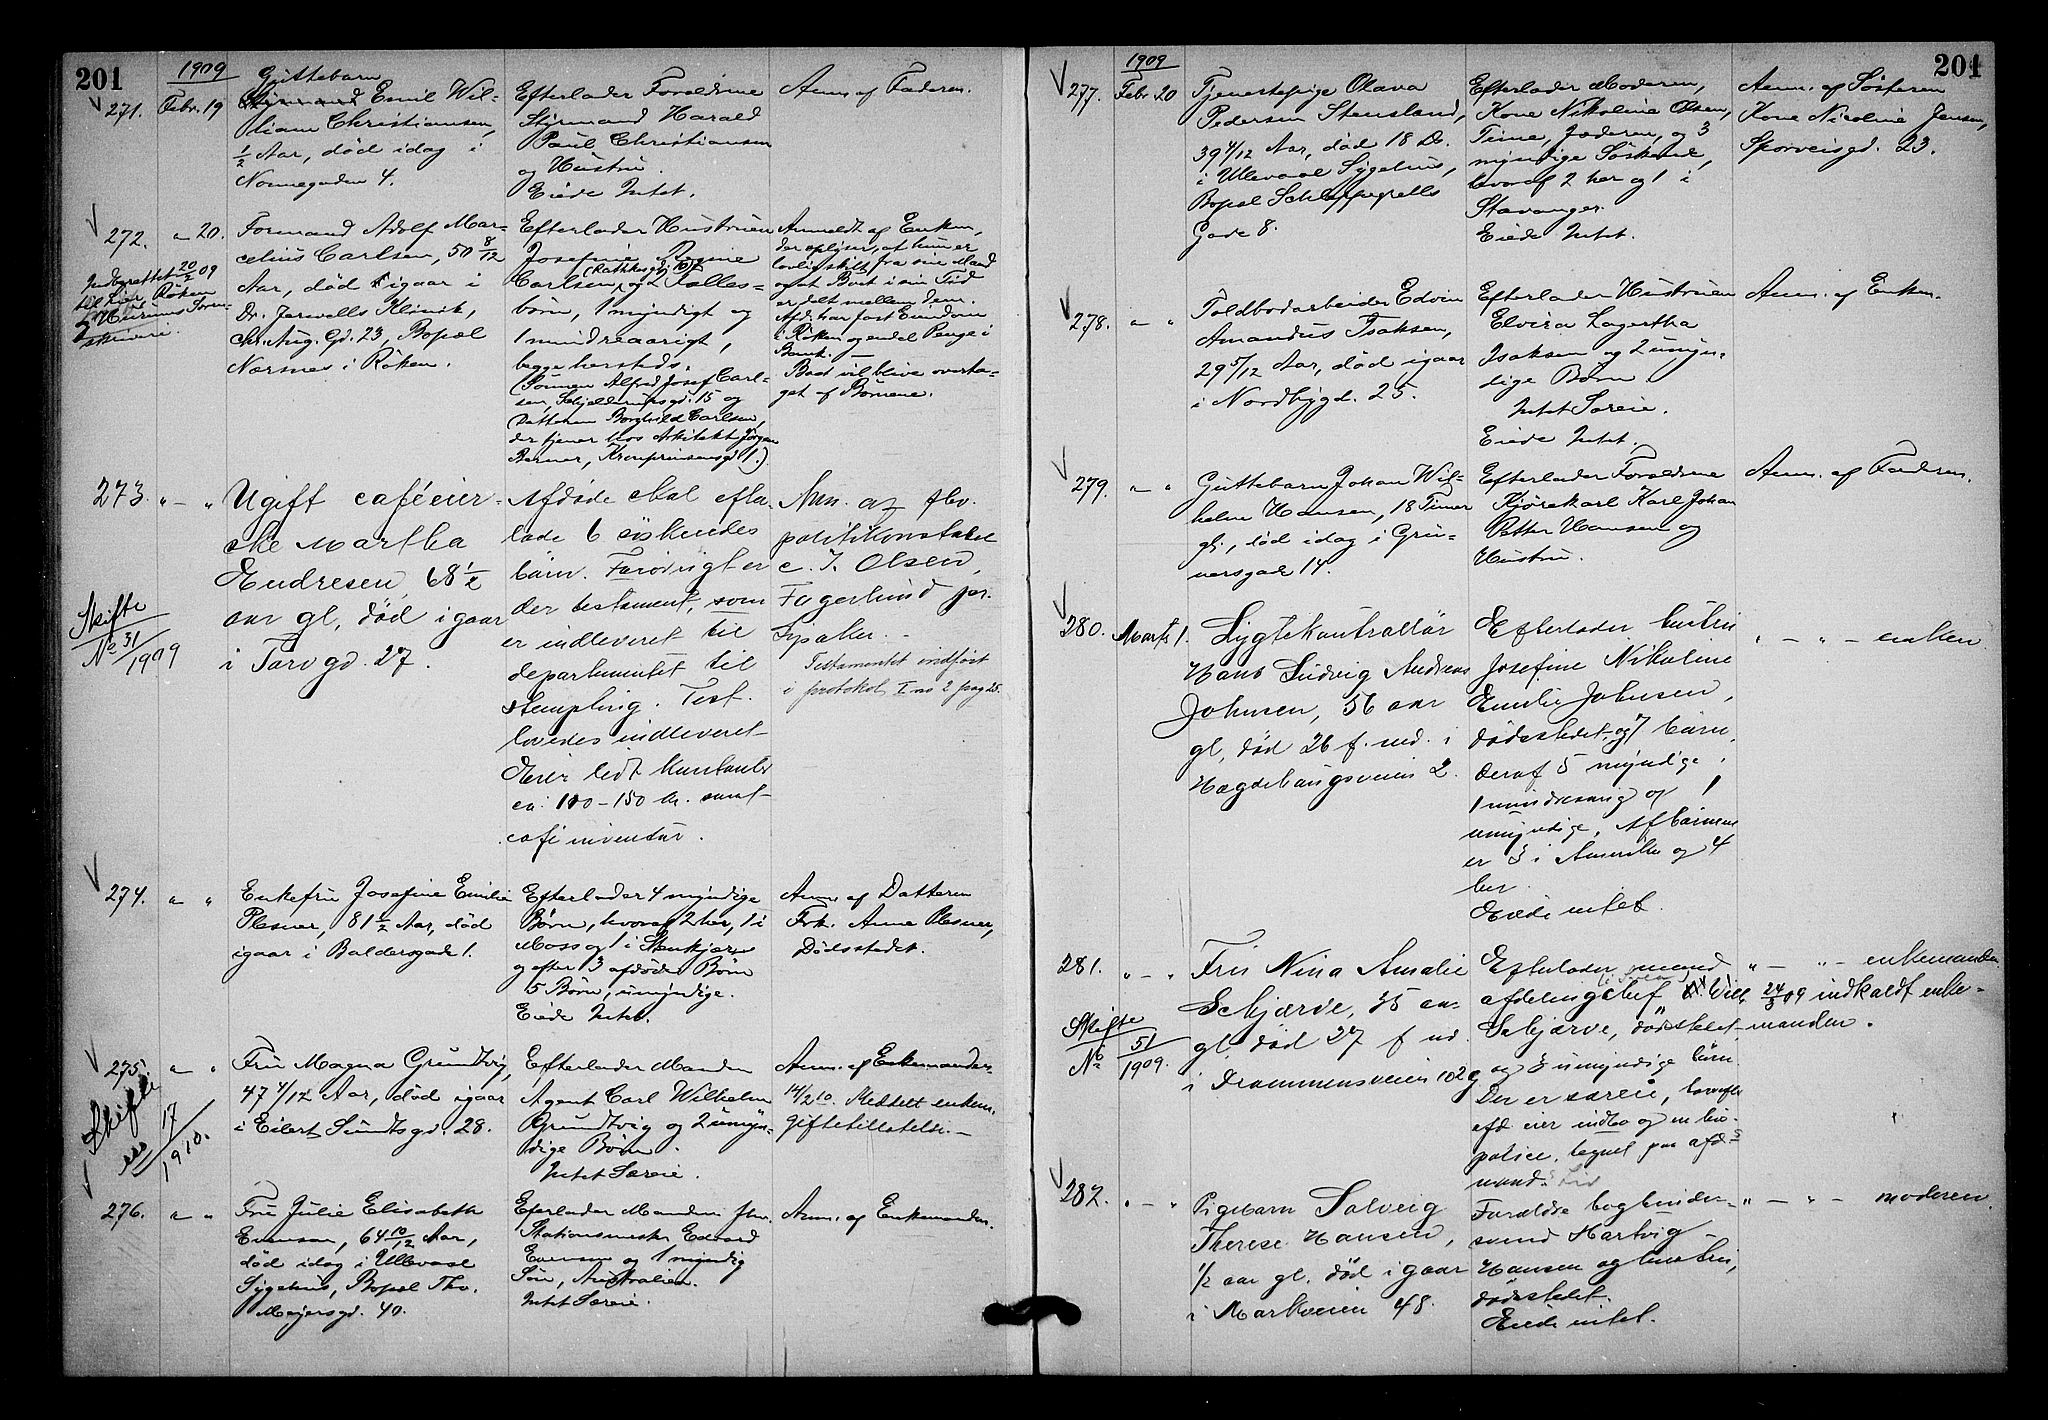 201
1909
271. Febr. 19
Guttebarn
Styrmand Emil Wil-
liam Christiansen,
1/2 Aar, død idag i
Nonnegaden 4.
Efterlader Forældrene
Styrmand Harald
Paul Christiansen
og Hustru.
Eiede Intet.
Anm. af Faderen.
272. " 20.
Indberettet 20/2 09
til Lier, Röken
og Hurums Soren-
skriveri
Formand Adolf Mar-
celius Carlsen, 50 8/12
Aar, død igaar i
Dr. Jervells Klinik,
Chr. Aug. Gd. 23, Bopæl
Nærsnes i Röken.
Efterlader Hustruen
Josefine Regine
(Rathkesgd. 10)
Carlsen, og 2 Fælles-
børn, 1 myndigt og
1 mindreaarigt,
begge hersteds.
(Sønnen Alfred Josef Carl-
sen, Schjelderupsgd. 15 og
Datteren Borghild Carlsen,
der tjener hos Arkitekt Jørgen
Berner, Kronprinsensgd 1.)
Anmeldt af Enken,
der oplyser, at hun er
lovlig skilt fra sin Mand
og at Boet i sin Tid
er delt mellem dem.
Afdøde har fast Eiendom
i Röken og endel Penge i
Bank. —
Boet vil blive overta-
get af Børnene.
273. " — "
Skifte
No 31/1909
Ugift caféeier-
ske Martha
Endresen, 68 1/2
aar gl, død igaar
i Torvgd. 27.
Afdøde skal efter-
lade 6 söskendes
børn. Forövrigt er
der testament, som
er indleveret til
departementet til
stempling. Test.
lovedes indleveret
Eier lidt kontanter
ca. 100-150 kr. samt
café inventar.
Anm. af fhv.
politikonstabel
C. J. Olsen,
Fagerlund pr.
Lysaker. -
Testamentet indført
i protokol I no 2 pag 25.
274. " "
Enkefru Josefine Emilie
Plesner, 81 1/2 Aar, død
igaar i Baldersgade 1.
Efterlader 4 myndige
Børn, hvoraf 2 her, 1 i
Moss og 1 i Stenkjær
og efter 3 afdøde Børn
5 Børn, umyndige.
Eiede Intet.
Anm. af Datteren
Frk. Anna Plesner,
Dødsstedet.
275. " "
Skifte
17/1910.
Fru Magna Grundtvig,
47 4/12 Aar, død igaar
i Eilert Sundtsgd. 28.
Efterlader Manden
Agent Carl Wilhelm
Grundtvig og 2 umyn-
dige Børn.
Intet Særeie.
Anm. af Enkemanden
14/2 10. Meddelt enkem.
giftetilladelse. —
276. " "
Fru Julie Elisabeth
Evensen, 64 10/12 Aar,
død idag i Ullevaal
Sygehus, Bopæl Thv.
Meyersgd. 40.
Efterlader Manden fhv.
Stationsmester Edvard
Evensen og 1 myndig
Søn, Australien.
Intet Særeie.
Anm. af Enkemanden.
201
1909
277. Febr. 20
Tjenestepige Olava
Pedersen Stensland,
39 4/12 Aar, død 18 Ds.
i Ullevaal Sygehus,
Bopæl Schleppegrells
Gade 8.
Efterlader Moderen,
Kone Nikolina Olsen,
Time, Jæderen, og 3
myndige Søskende,
hvoraf 2 her og 1 i
Stavanger.
Eiede Intet.
Anm. af Søsteren
Kone Nicoline Jensen,
Sporveisgd. 23.
278. " "
Toldbodarbeider Edvin
Amandus Isaksen,
29 5/12 Aar, død igaar
i Nordbygd. 25.
Efterlader Hustruen
Elvira Lagertha
Isaksen og 2 umyn-
dige Børn.
Intet Særeie.
Eiede Intet.
Anm. af Enken.
279. " "
Guttebarn Johan Wil-
helm Hansen, 18 Timer
gl., død idag i Grü-
nersgade 14.
Efterlader Forældrene
Kjørekarl Karl Johan
Petter Hansen og
Hustru.
Anm. af Faderen.
280. Marts 1.
Lygtekontrollør
Hans Ludvig Andreas
Johnsen, 56 aar
gl, død 26 f. md. i
Hægdehaugsveien 2.
Efterlader hustru
Josefine Nikoline
Emilie Johnsen,
dödsstedet, og 7 børn,
deraf 5 myndige,
1 mindreaarig og 1
umyndige. Af børnene
er 3 i Amerika og 4
her.
Eiede intet.
" — " — enken
281. " — "
Skifte
No 51/1909.
Fru Nina Amalie
Schjærve, 35 aar
gl, død 27 f. md.
i Drammensveien 102 g
Efterlader mand
afdelingschef Wilh.
Schjærve, dødsstedet
og 3 umyndige børn
Der er særeie, hvorefter
afd. eier indbo og en liv-
police, tegnet paa afd.s
mands Liv
" — " — enkemanden
24/3 09 indkaldt enke-
manden.
282. " — "
Pigebarn Solveig
Therese Hansen,
1/2 aar gl. død igaar
i Markveien 48.
Forældre bogbinder-
svend Hartvig
Hansen og hustru,
dødsstedet.
Eiede intet.
" — " — moderen